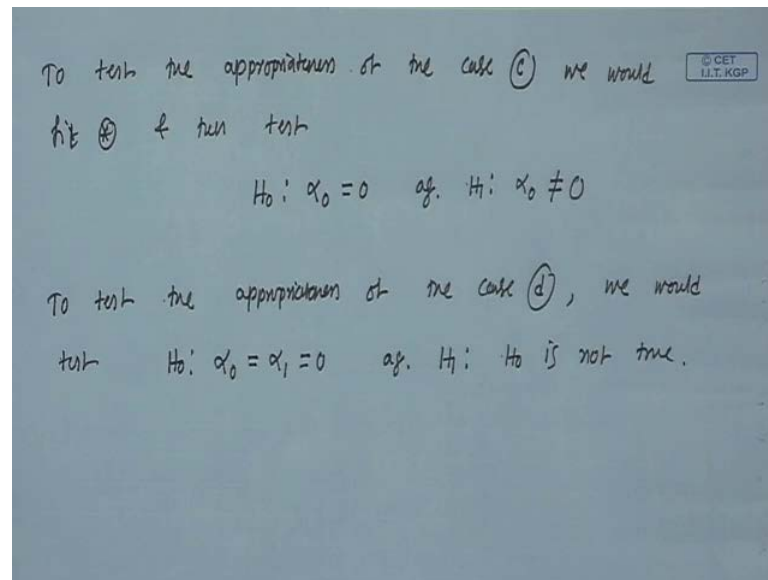 To test the appropriateness of the case ⓒ we would
© CET
I.I.T. KGP
fit ⊛ & then test
H₀: α₀ = 0 ag. H₁: α₀ ≠ 0
To test the appropriateness of the case ⓓ, we would
test H₀: α₀ = α₁ = 0 ag. H₁: H₀ is not true.